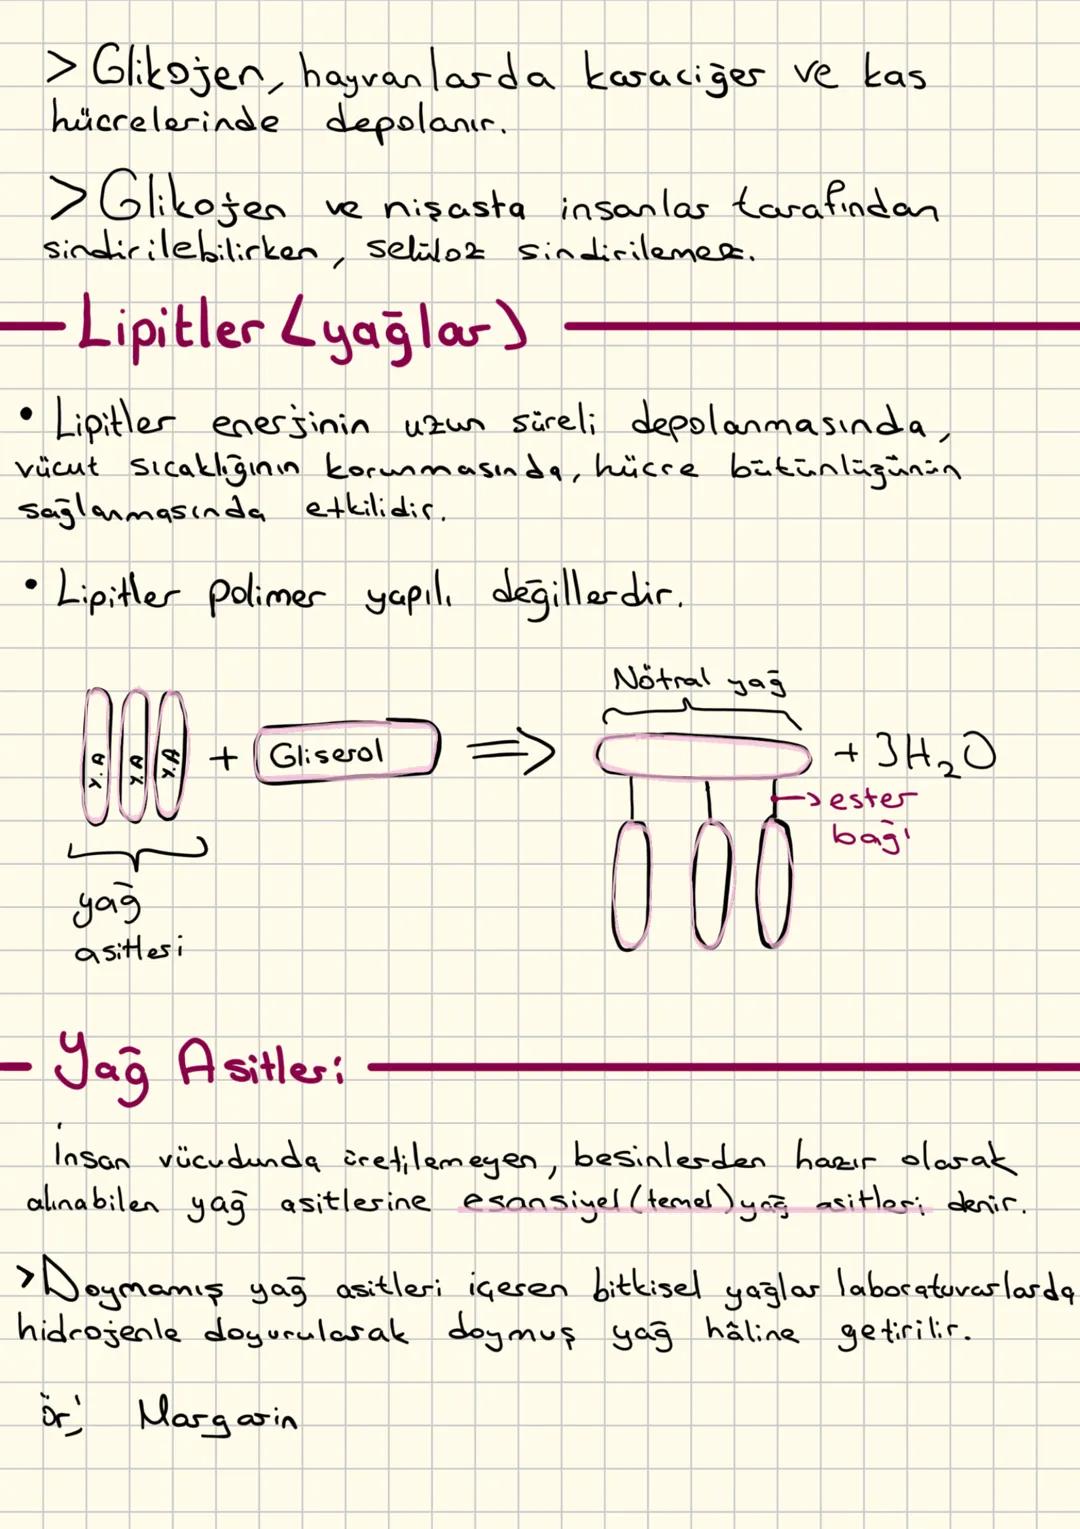 > Glikojen, hayvanlarda karaciğer ve kas
hücrelerinde depolanır.
> Glikojen ve nişasta insanlar tarafından
sindirilebilirken, selüloz sindirilemez.
Lipitler (yağlar)
• Lipitler enerjinin uzun süreli depolanmasında,
vücut sıcaklığının korunmasında, hücre bütünlüğünün
sağlanmasında etkilidir.
• Lipitler polimer yapılı değillerdir.
Nötral yağ
y.a y.a y.a + Gliserol ⇒ + 3H₂O
→ ester
bağı
yağ
asitleri
Yağ Asitleri
İnsan vücudunda üretilemeyen, besinlerden hazır olarak
alınabilen yağ asitlerine esansiyel (temel) yağ asitleri denir.
> Doymamış yağ asitleri içeren bitkisel yağlar laboratuvarlarda
hidrojenle doyurularak doymuş yağ hâline getirilir.
ör; Margarin